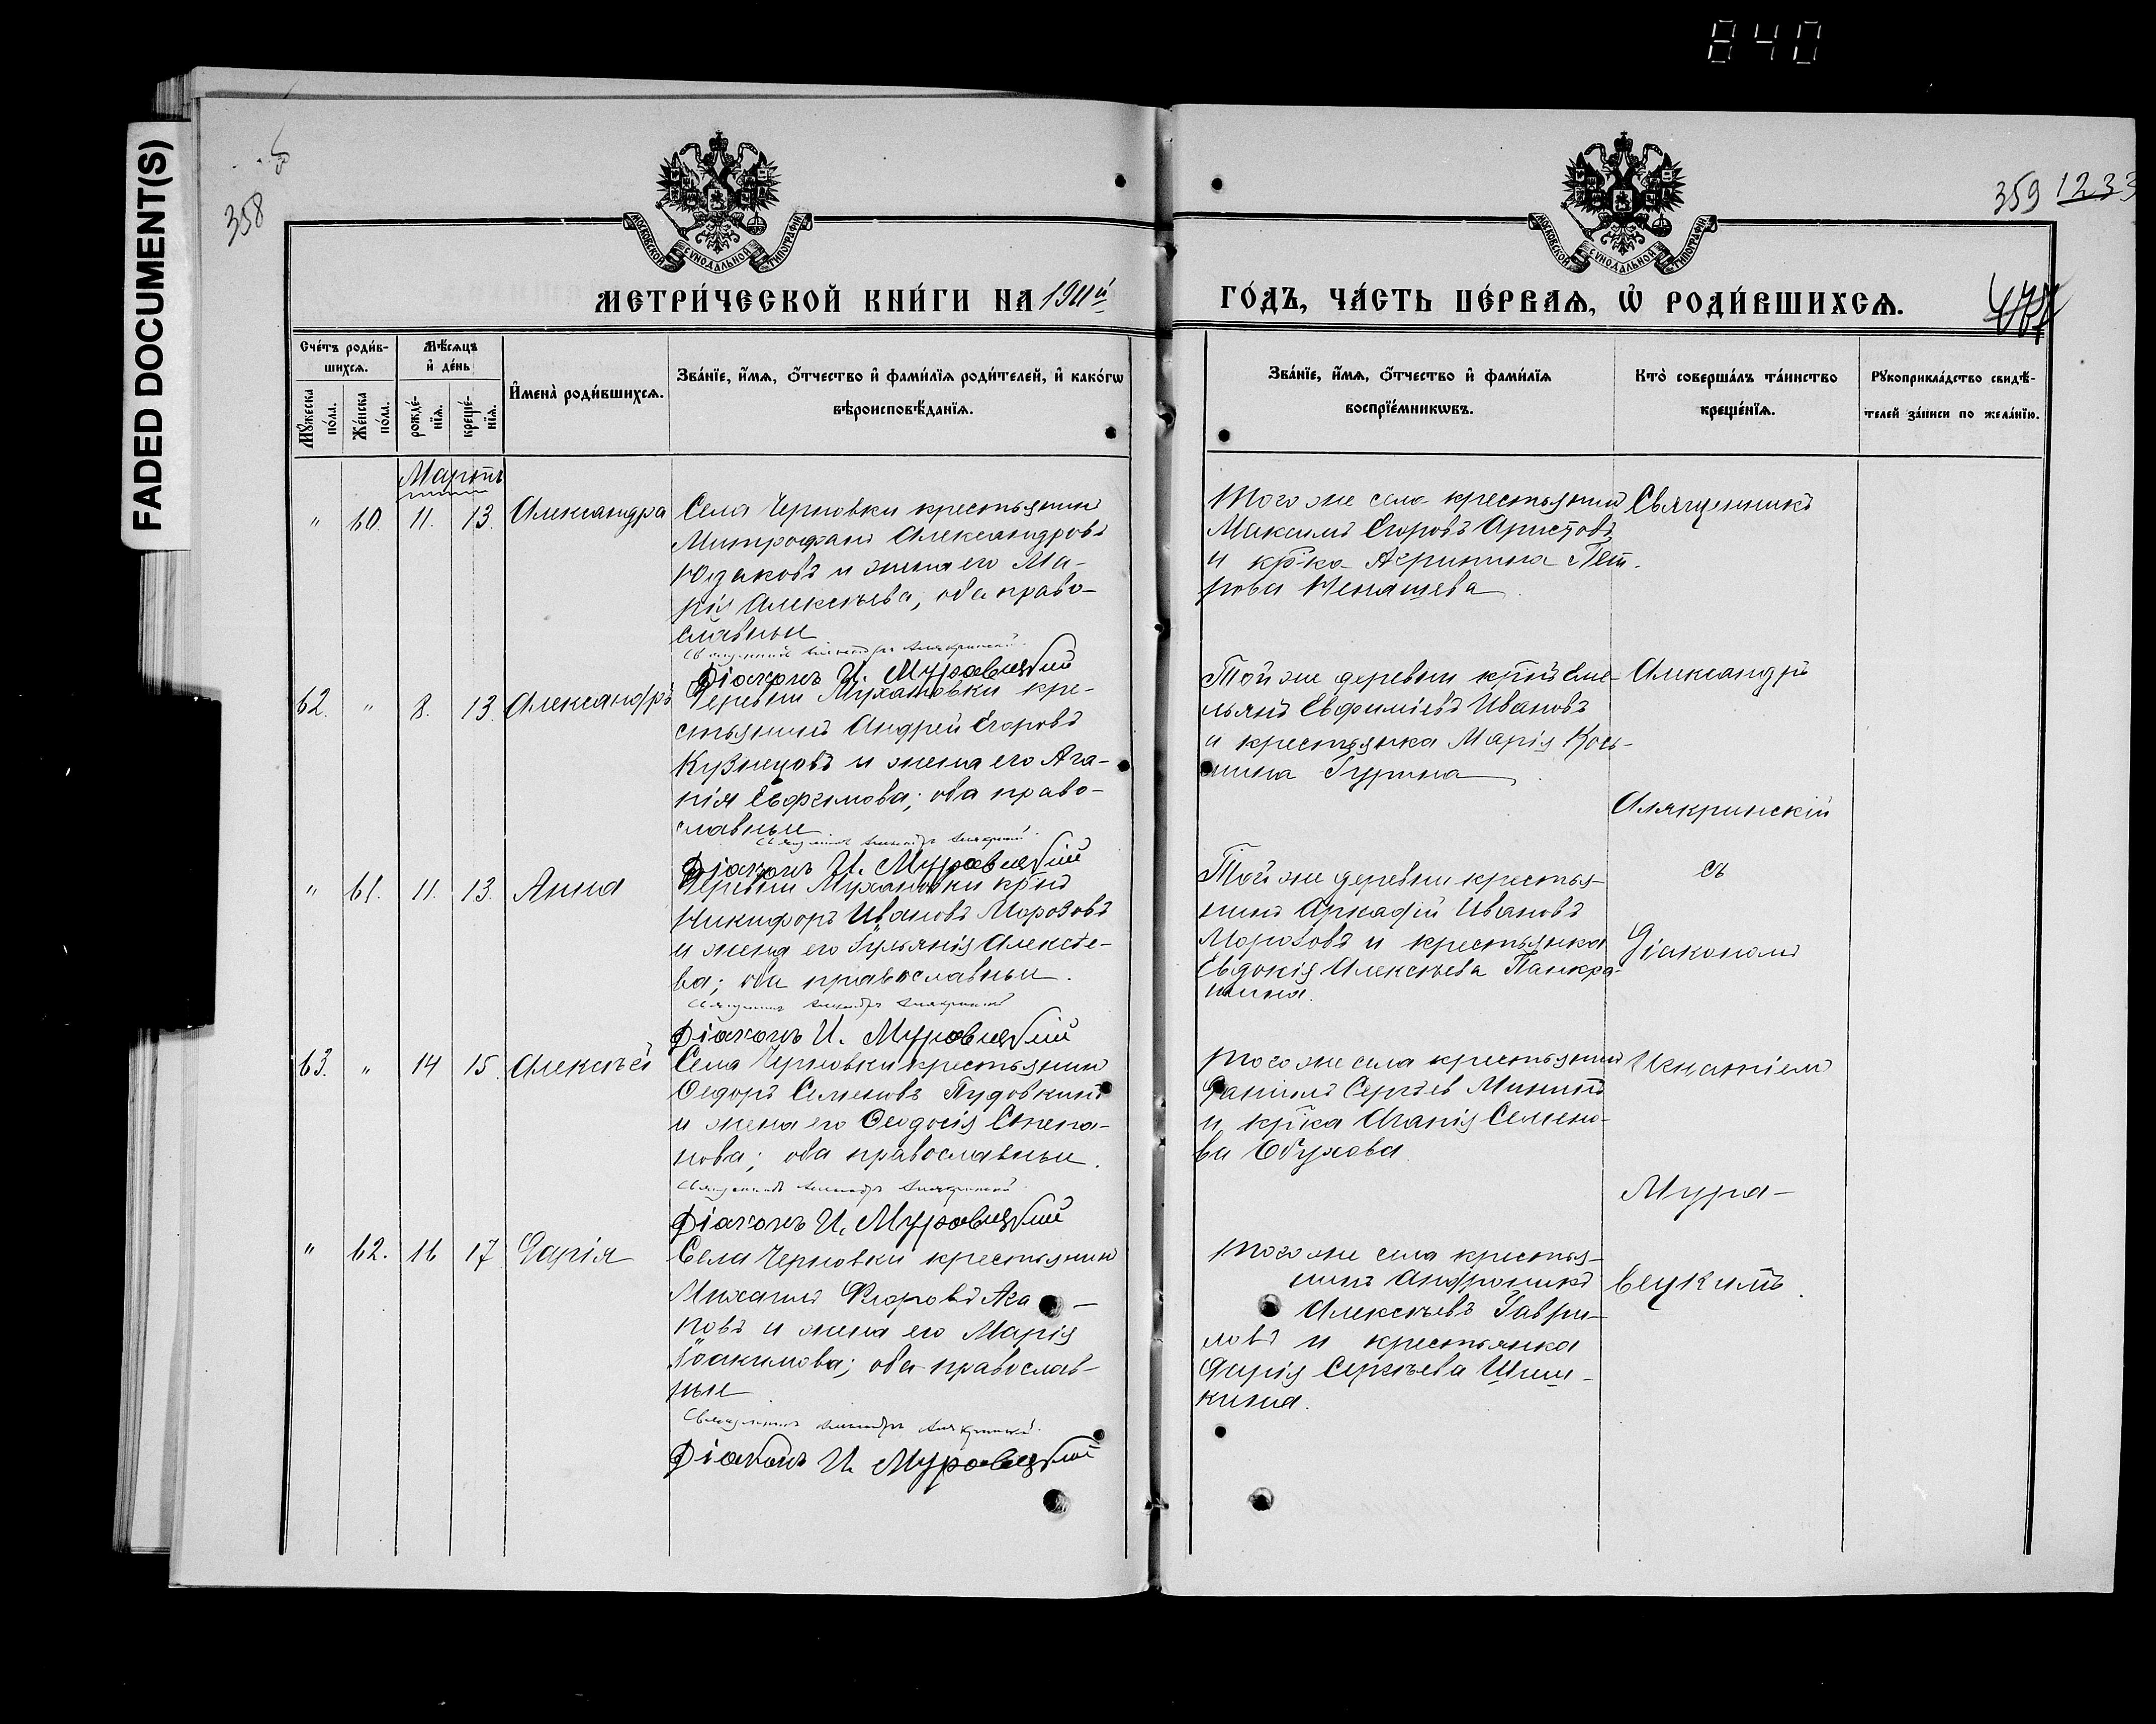 840
FADED DOCUMENT(S)
358
359 1233
МОСКОВСКОЙ СѴНОДАЛЬНОЙ ТИПОГРАФІИ
МОСКОВСКОЙ СѴНОДАЛЬНОЙ ТИПОГРАФІИ
МЕТРИ́ЧЕСКОЙ КНИ́ГИ НА 1911й
ГО́ДЪ, ЧА́СТЬ ПЕ́РВАѦ, Ѡ҆ РОДИ́ВШИХСѦ.
Сче́тъ роди́в-
шихсѧ.
Мꙋ́жеска по́ла.
Же́нска по́ла.
Мѣ́сѧцъ
и҆ де́нь
рожде́-
нїѧ.
креще́-
нїѧ.
И҆мена̀ роди́вшихсѧ.
Зва́нїе, и҆́мѧ, ѻ҆́тчество и҆ фами́лїѧ роди́телей, и҆ како́гѡ
вѣроисповѣ́данїѧ.
Зва́нїе, и҆́мѧ, ѻ҆́тчество и҆ фами́лїѧ
воспрїе́мникѡвъ.
Кто̀ соверша́лъ та́инство
креще́нїѧ.
Рꙋкоприкла́дство свидѣ́-
телей за́писи по жела́нїю.
Мартъ
" 60. 11. 13. Александра
Села Черновки крестьянин
Митрофанъ Александровъ
Юдаковъ и жена его Ма-
рія Алексѣева, оба право-
славные
Священникъ Александръ Алякринскій.
Діаконъ И. Муравецкій
Того же села крестьянин
Максимъ Егоровъ Аристовъ
и кр-ка Агрипина Пет-
рова Ненашева.
Священникъ
62. " 8. 13. Александръ
Деревни Мухановки кре-
стьянинъ Андрей Егоровъ
Кузнецовъ и жена его Ага-
пія Евфимова; оба право-
славные
Священникъ Александръ Алякринскій.
Діаконъ И. Муравецкій
Той же деревни кр-нъ Еме-
льянъ Евфиміевъ Ивановъ
и крестьянка Марія Кось-
мина Гурина.
Александръ
Алякринскій
" 61. 11. 13. Анна
Деревни Мухановки кр-нъ
Никифоръ Ивановъ Морозовъ
и жена его Іульянія Алексѣе-
ва; оба православные.
Священникъ Александръ Алякринскій
Діаконъ И. Муравецкій
Той же деревни крестья-
нинъ Аркадій Ивановъ
Морозовъ и крестьянка
Евдокія Алексѣева Панкра-
шина.
съ
Діакономъ
63. " 14 15. Алексѣй
Села Черновки крестьянин
Ѳедоръ Семеновъ Пудовкинъ
и жена его Ѳеодосія Степа-
нова; оба православные.
Священникъ Александръ Алякринскій.
Діаконъ И. Муравецкій
Того же села крестьянин
Даніилъ Сергѣевъ Мининъ
и кр-ка Агапія Семено-
ва Обухова.
Игнатіем
Мура-
" 62. 16 17 Дарія
Села Черновки крестьянин
Михаилъ Ѳедоровъ Ага-
повъ и жена его Марія
Іоакимова; оба православ-
ные
Священникъ Александръ Алякринскій.
Діаконъ И. Муравецкій
Того же села крестья-
нинъ Андроникъ
Алексѣевъ Гаври-
ловъ и крестьянка
Дарія Сергѣева Шиш-
кина.
вецкимъ.